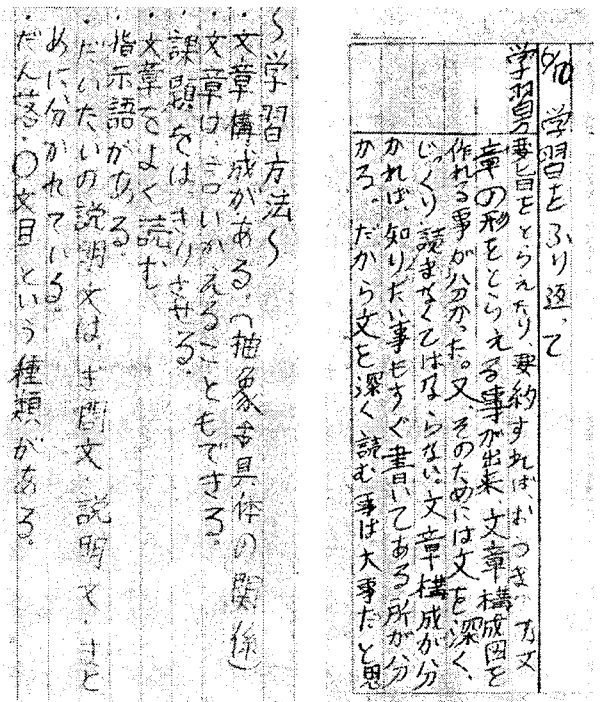 学習をふり返って
学習 要旨をとらえたり、要約すれば、おつきな文
章の形をとらえる事が出来、文章構成図を
作れる事が分かった。又、そのためには文を深く、
じっくり読まなくてはならない。文章構成が分
かれば、知りたい事もすぐ書いてある所が分
かる。だから文を深く読む事は大事だと思
〜学習方法〜
・文章構成がある。(抽象 具体の関係)
・文章は、言いかえることもできる。
・課題をはっきりさせる。
・文章をよく読む。
・指示語がある。
・だいたいの説明文は、 問文・説明文・まと
めに分かれている。
・だん落・〇文目という種類がある。